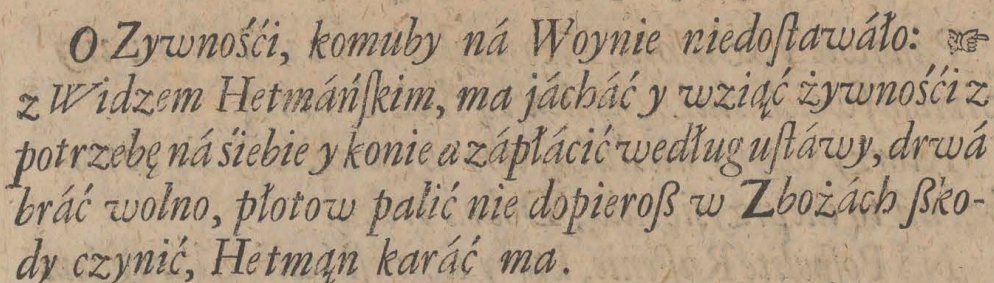 O Zywnośći, komuby ná Woynie niedoſtawáło: ☞
z Widzem Hetmáńſkim, ma jácháć y wziąć żywnośći z
potrzebę ná śiebie y konie a zápłácić według uſtáwy, drwá
bráć wolno, płotow palić nie dopieroß w Zbożách ßko-
dy czynić, Hetmąn karáć ma.